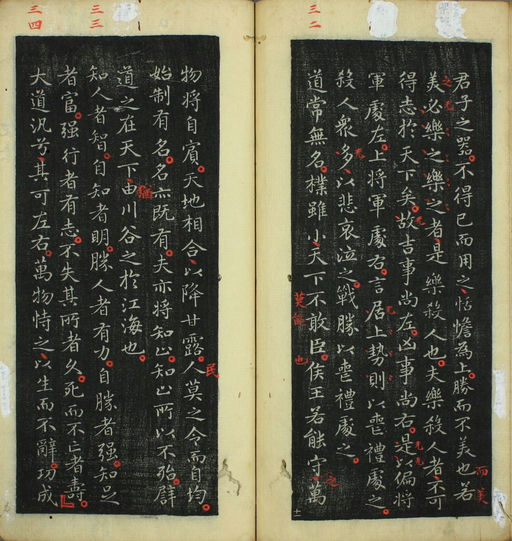 君子之器不得已而用之恬憺為上勝而不美也若
美必樂之樂之者是樂殺人也夫樂殺人者不可
得志於天下矣故吉事尚左凶事尚右是以偏將
軍處左上將軍處右言居上勢則以喪禮處之
殺人衆多以悲哀泣之戰勝以喪禮處之
道常無名樸雖小天下不敢臣侯王若能守萬
物將自賓天地相合以降甘露人莫之令而自均
始制有名名亦既有夫亦將知止知止所以不殆譬
道之在天下由川谷之於江海也
知人者智自知者明勝人者有力自勝者强知足
者富强行者有志不失其所者久死而不亡者壽
大道汎兮其可左右萬物恃之以生而不辭功成
而美
之
莫能
也
民
猶
三二
三三
三四